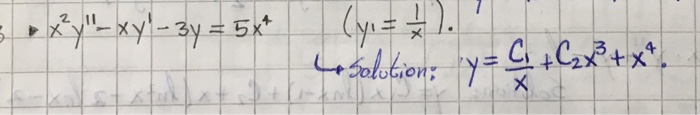 • x²y'' - xy' - 3y = 5x⁴ (y₁ = 1/x).
↳ Solution: y = C₁/x + C₂x³ + x⁴.